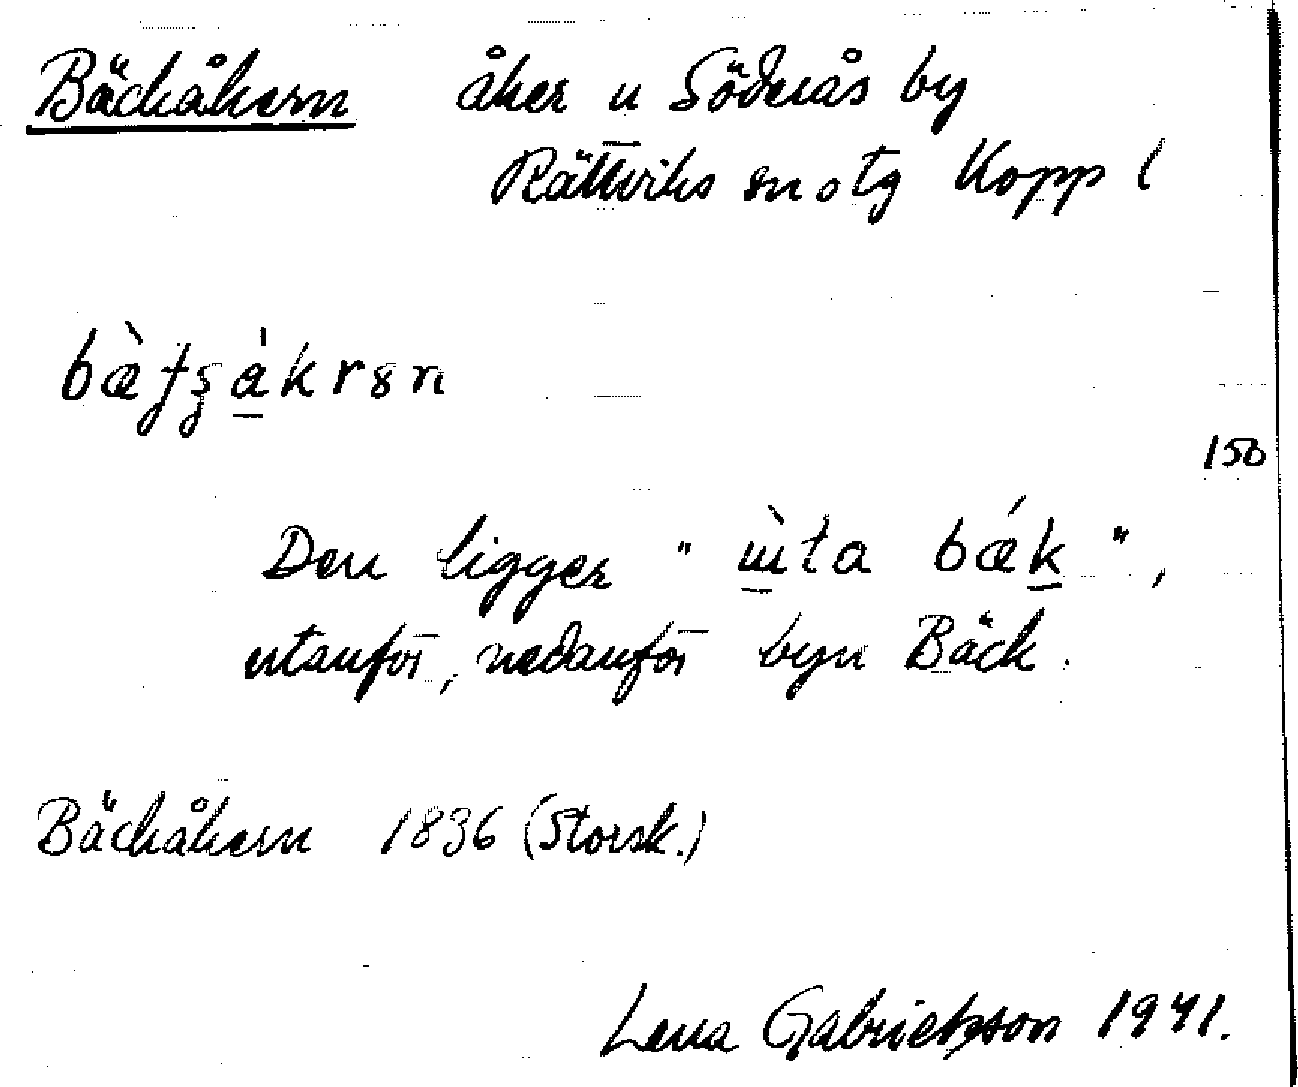 Bäckåkern åker u Söderås by
Rättviks sn o tg Kopp l
Den ligger "ùta bǽk",
utanför, nedanför byn Bäck.
Bäckåkern 1836 (Storsk.)
Lena Gabrielsson 1941.